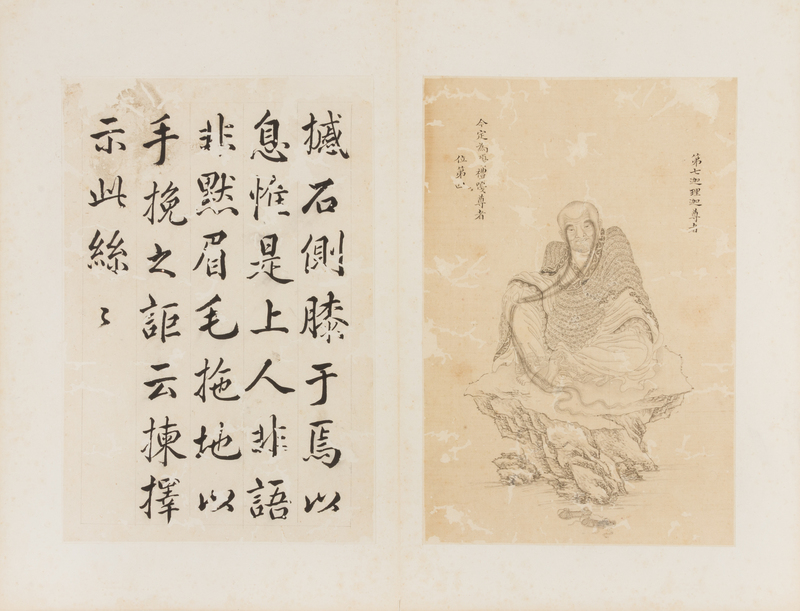 第七迦理迦尊者
今定為嘎禮嘎尊者
位第四
撼石側膝于焉以
息惟是上人非語
非默眉毛拖地以
手挽之詎云揀擇
示此絲〻